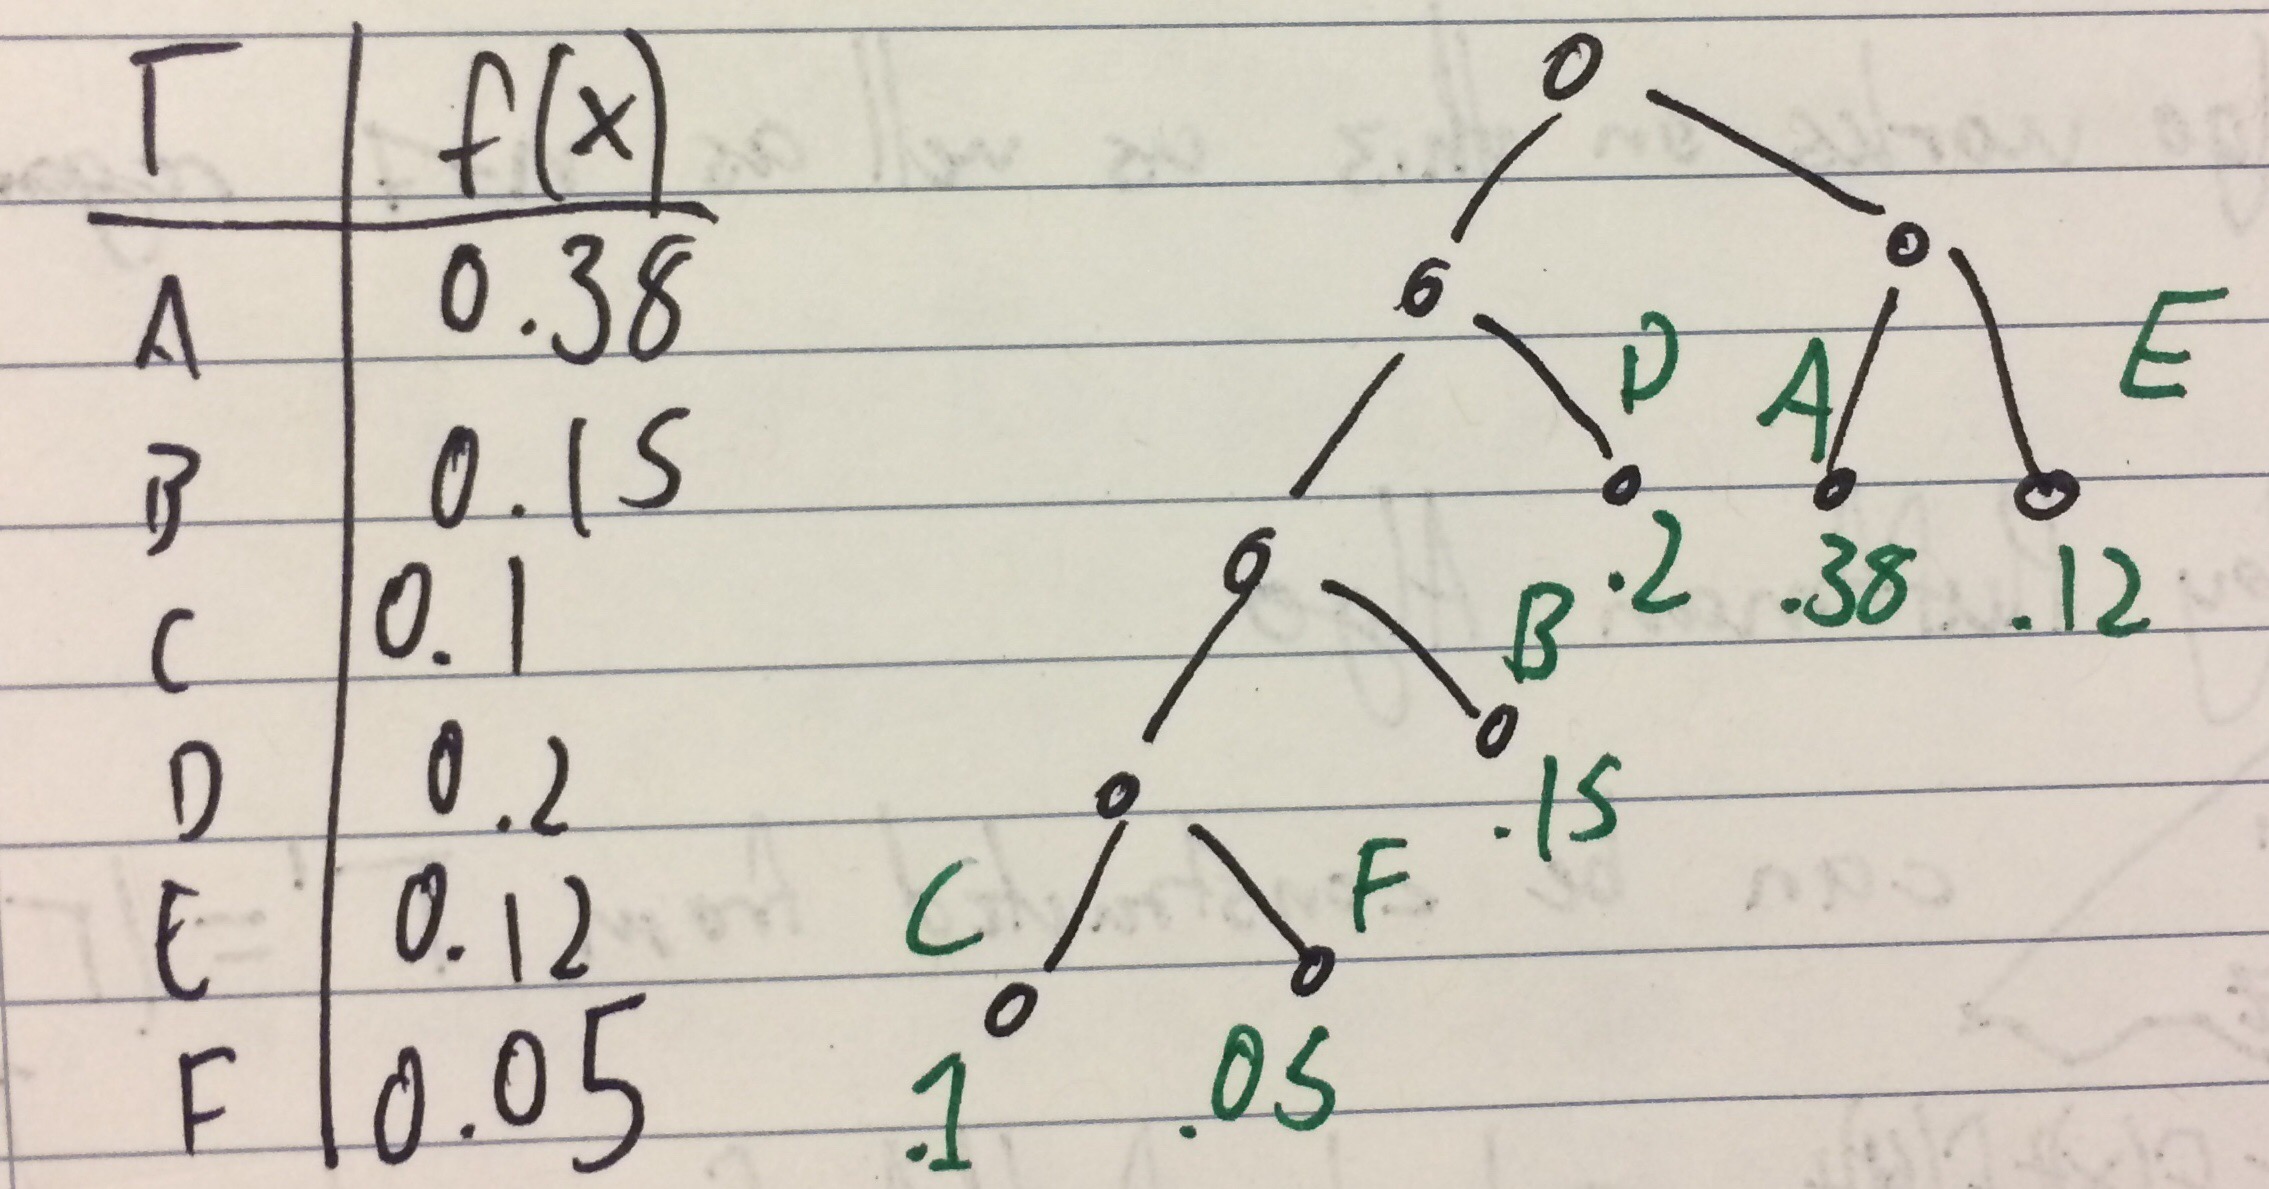 Γ f(x)
A 0.38
B 0.15
C 0.1
D 0.2
E 0.12
F 0.05
D A E
.2 .38 .12
B
.15
C F
.1 .05